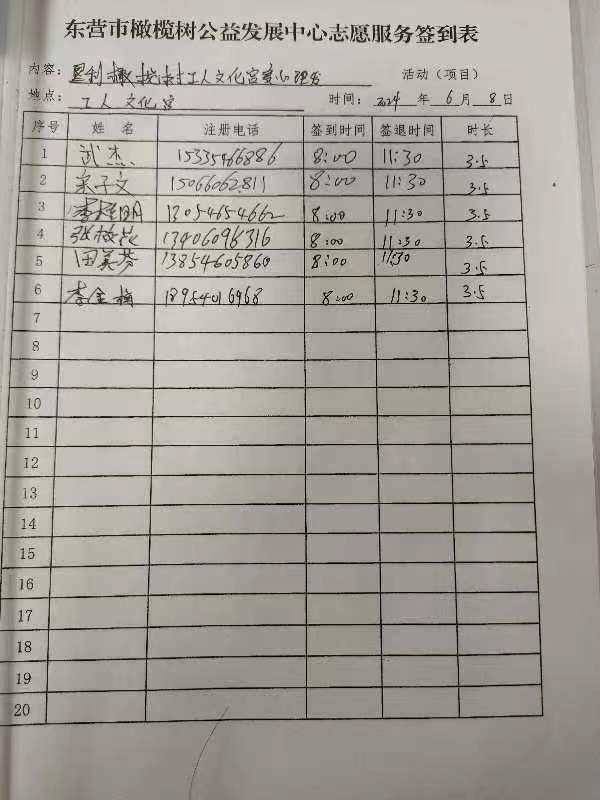 东营市橄榄树公益发展中心志愿服务签到表
内容：垦利橄榄树工人文化宫爱心理发 活动（项目）
地点：工人文化宫 时间：2024年6月8日
序号 姓名 注册电话 签到时间 签退时间 时长
1 武杰 15335466886 8:00 11:30 3.5
2 子文 15066062811 8:00 11:30 3.5
3 李 明 13054654662 8:00 11:30 3.5
4 张 花 13406096316 8:00 11:30 3.5
5 田美芬 13854605860 8:00 11:30 3.5
6 李金梅 18954016968 8:00 11:30 3.5
7
8
9
10
11
12
13
14
15
16
17
18
19
20